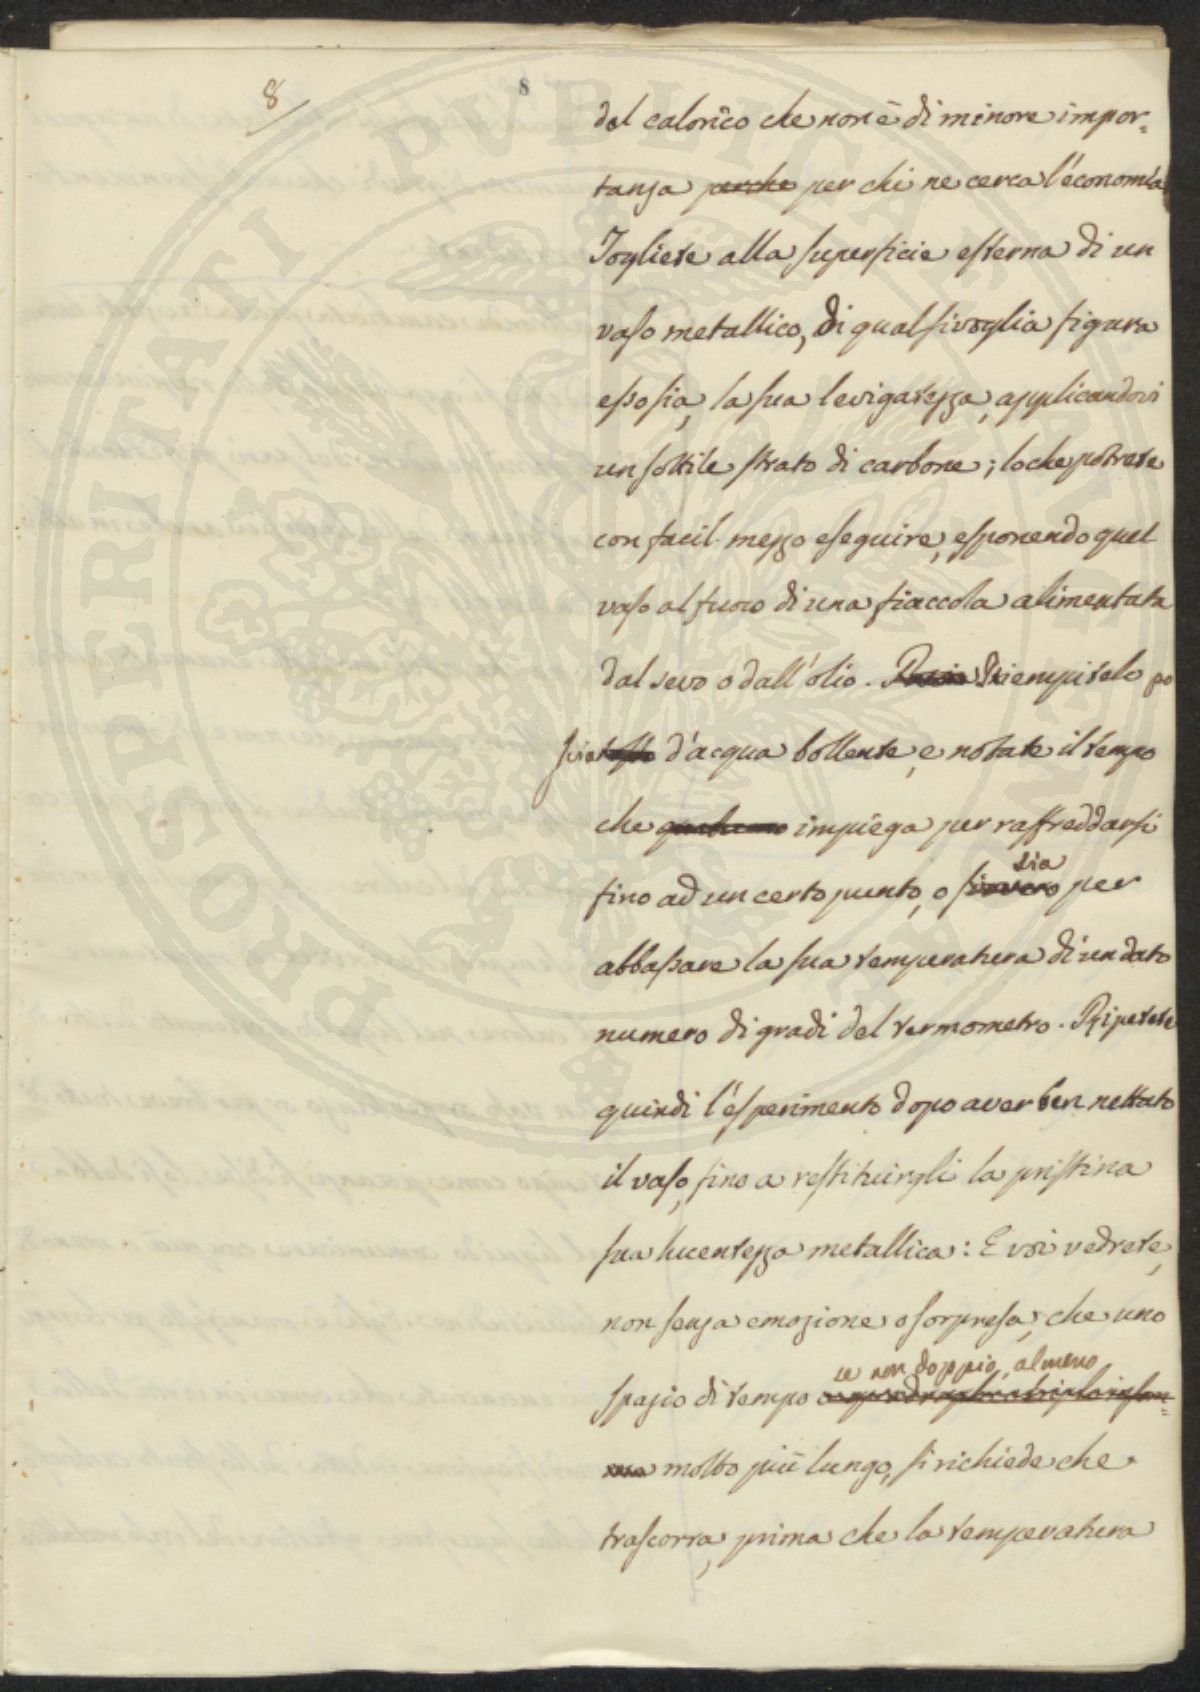 8
8
del calorico che non è di minore impor=
tanza perche per chi ne cerca l'economia
Togliete alla superficie esterna di un
vaso metallico, di qualsivoglia figura
esso sia, la sua levigatezza, applicandovi
un sottile strato di carbone; loche potrete
con facil mezzo eseguire, esponendo quel
vaso al fumo di una fiaccola alimentata
dal sevo o dall'olio. Riempitelo po
scia d'acqua bollente, e notate il tempo
che impiega per raffreddarsi
sia
fino ad un certo punto, o per
abbassare la sua temperatura di un dato
numero di gradi del termometro. Ripetete
quindi l'esperimento dopo aver ben nettato
il vaso, fino a restituirgli la pristina
sua lucentezza metallica: E voi vedrete,
non senza emozione o sorpresa, che uno
se non doppio, almeno
spazio di tempo
molto più lungo, si richiede che
trascorra, prima che la temperatura
PROSPERITATI PUBLICAE